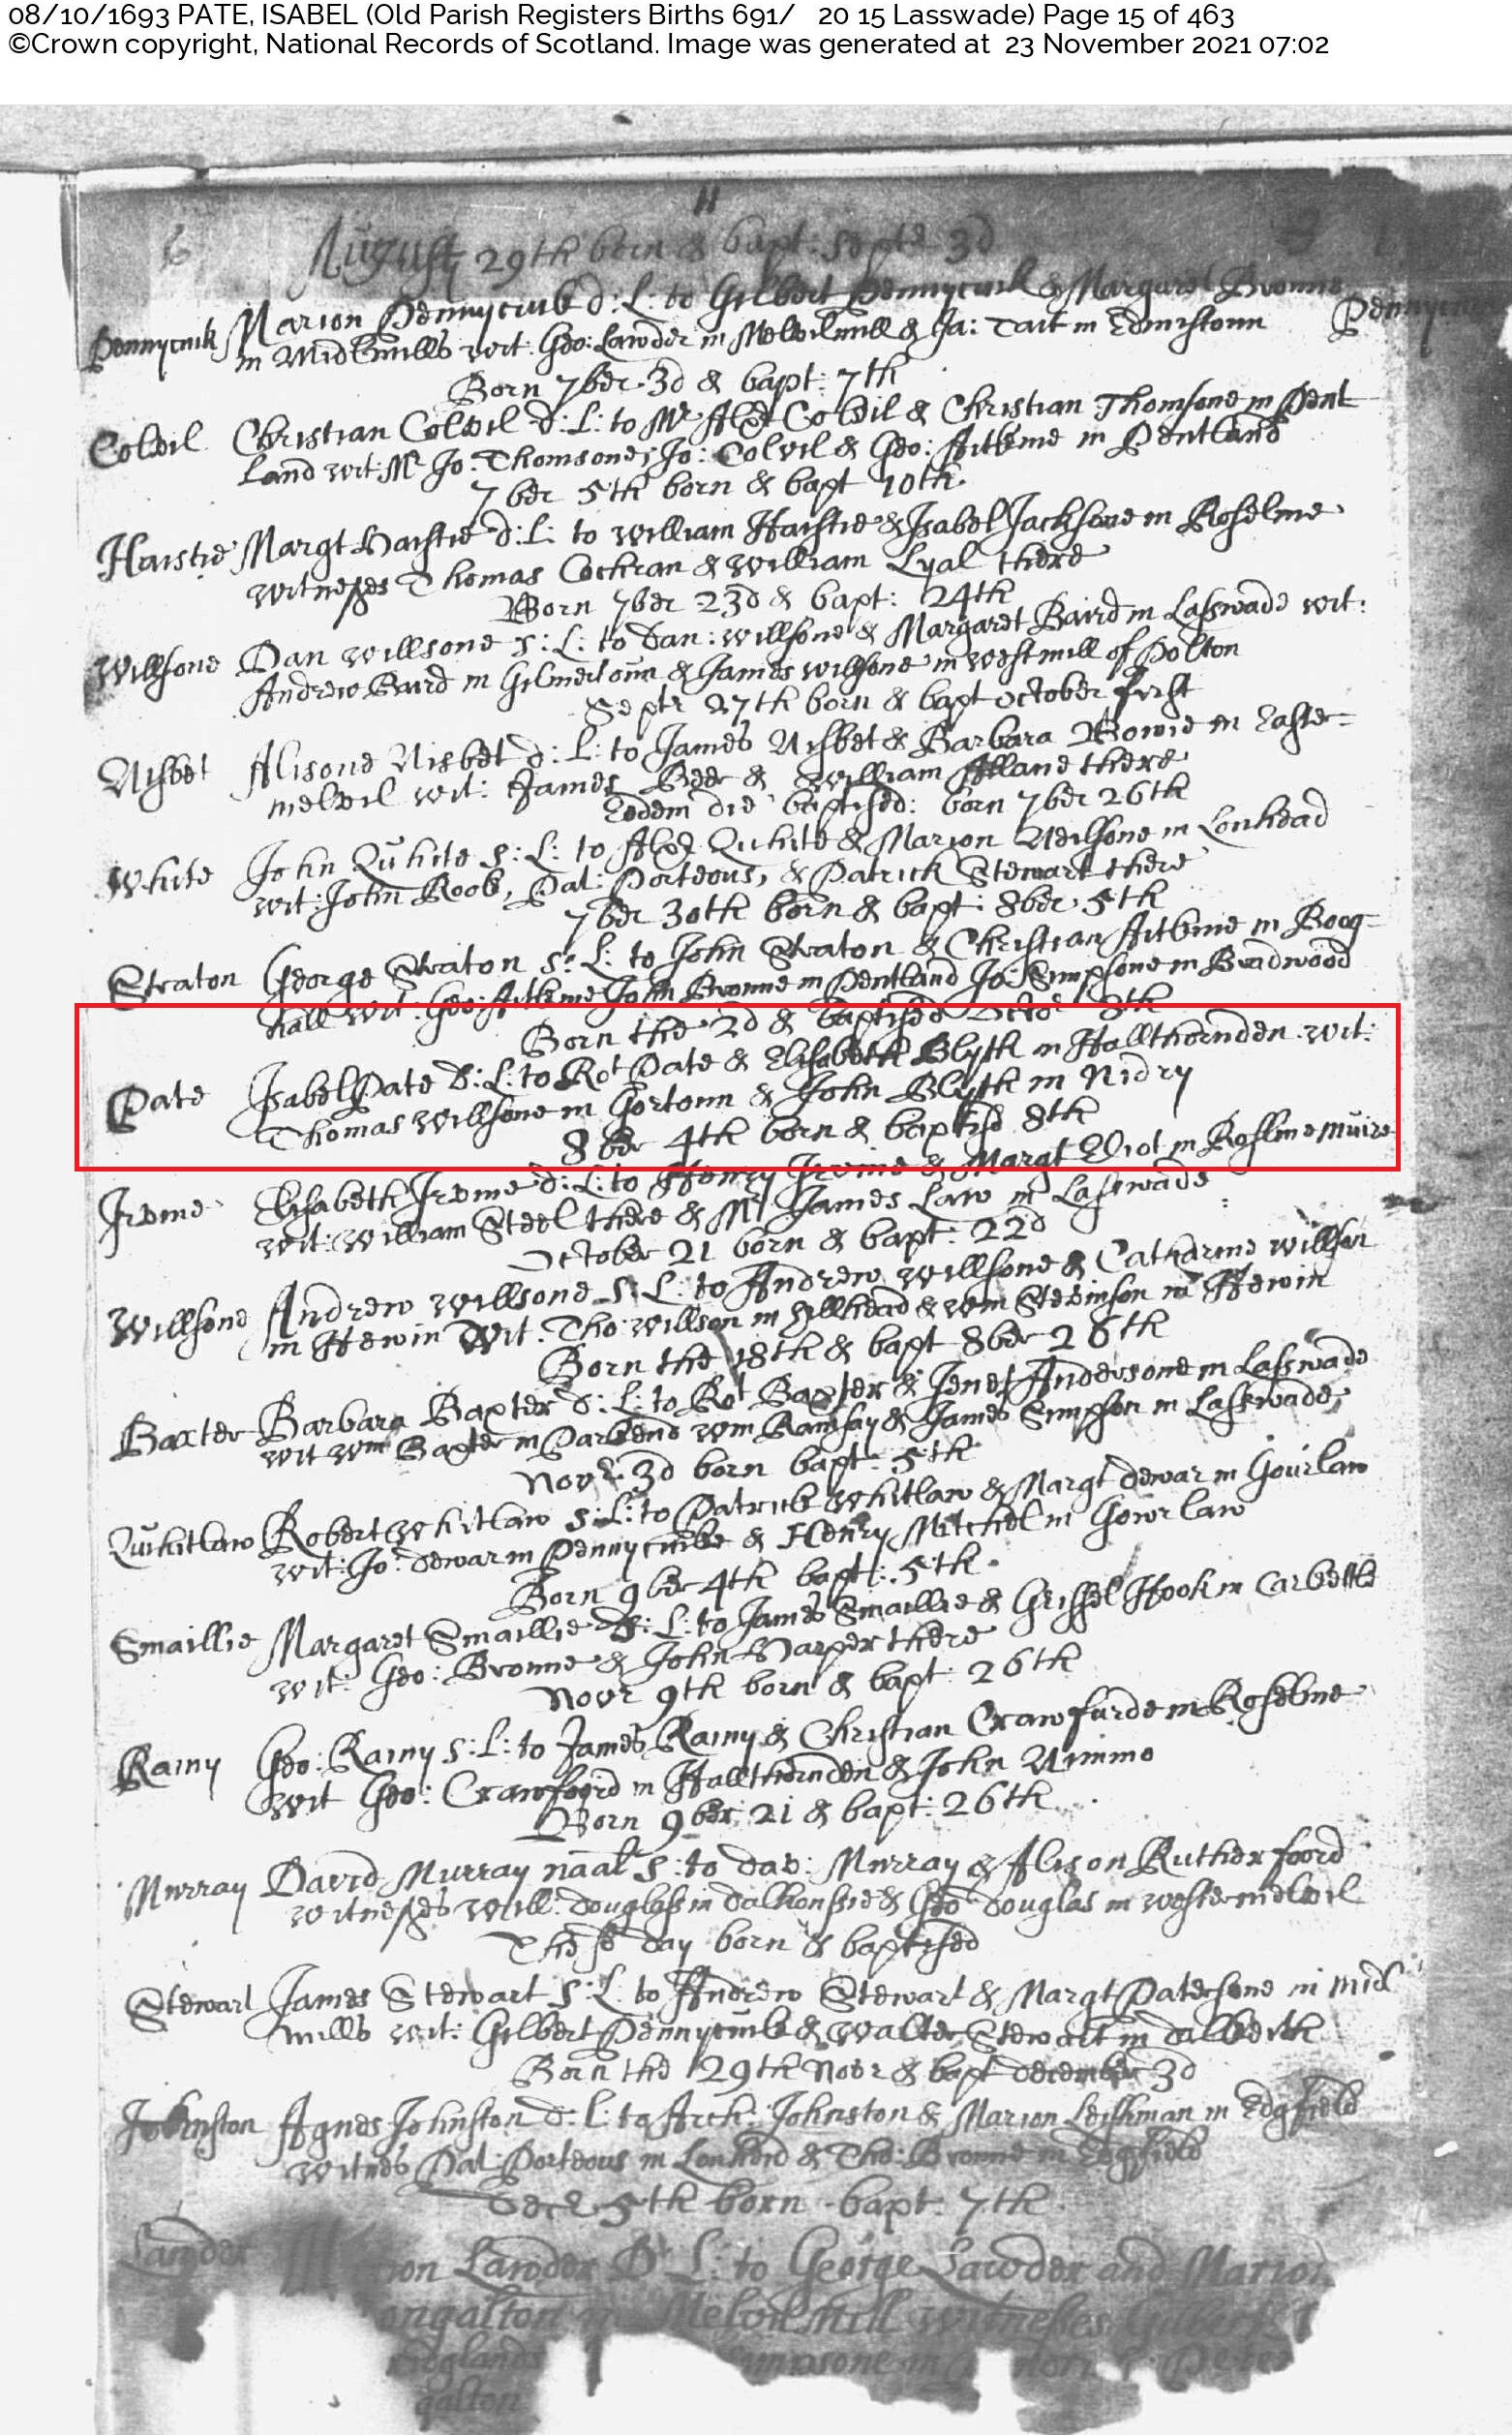 08/10/1693 PATE, ISABEL (Old Parish Registers Births 691/ 20 15 Lasswade) Page 15 of 463
©Crown copyright, National Records of Scotland. Image was generated at 23 November 2021 07:02
11
6 August 29th born & bapt: Septr 3d
Pennycuik Marion Pennycuik d: L: to Gilbert Pennycuik & Margaret Broune
in Midlmills wit: Geo: Lawder in Melvilmill & Ja: Tait in
Born 7ber 3d & bapt: 7th
Colvil Christian Colvil d: L: to Mr Alexr Colvil & Christian Thomsone in Pent
Land wit: Mr Jo: Thomsone, Jo: Colvil & Geo: Aitkine in Pentland
7ber 5th born & bapt 10th
Haistie Margt Haistie d: L: to William Haistie & Isabel Jacksone in Roseline
witnesses Thomas Cochran & William Lyal there
Born 7ber 23d & bapt: 24th
Willsone Dan Willsone s: L: to Dan: Willsone & Margaret Baird in Lasswade wit:
Andrew Baird in Gilmertoun & James Willsone in Westmill of Polton
Septr 27th born & bapt october first
Nisbet Alisone Nisbet d: L: to James Nisbet & Barbara Bowie in Easter=
melvil wit: James Beer & William Allane there
Eodem die baptised: born 7ber 26th
White John Quhite s: L: to Alexr Quhite & Marion Neilsone in Lonhead
wit: John Roob, Pat: Porteous, & Patrick Stewart there
7ber 30th born & bapt: 8ber 5th
Straton George Straton s: L: to John Straton & Christian Aitkine in Boog=
hall wit: Geo: Aitkine John Broune in Pentland Jo: Simpsone in Bradwood
Born the 2d & baptised Octor 8th
Pate Isabel Pate d: L: to Rot Pate & Elisabeth Blyth in Hallthornden wit:
Thomas Willsone in Gortoun & John Blyth in Nidry
8ber 4th born & baptisd 8th
Irvine Elisabeth Irvine d: L: to Henry Irvine & Margt Eliot in Roslinemuire
wit: William Steel there & Mr James Law in Lasswade
October 21 born & bapt: 22d
Willsone Andrew Willsone s: L: to Andrew Willsone & Catharine Willson
in Hewin wit: Tho: Willson in Hillhead & Wm Stevinson in Hewin
Born the 18th & bapt 8ber 26th
Baxter Barbara Baxter d: L: to Rot Baxter & Jenet Andersone in Lasswade
wit Wm Baxter in Parkend Wm Ramsay & James Simpson in Lasswade
Novr 3d born bapt: 5th
Quhitlaw Robert Whitlaw s: L: to Patrick Whitlaw & Margt Dewar in Gourlaw
wit: Jo: Dewar in Pennycuike & Henry Mitchel in Gowrlaw
Born 9ber 4th bapt: 5th
Smaillie Margaret Smaillie d: L: to James Smaillie & Grissel Hook in
wit: Geo: Broune & John Harper there
Novr 9th born & bapt: 26th
Rainy Geo: Rainy s: L: to James Rainy & Christian Crawfurde in Roseline
wit Geo: Crawfoord in Hallthornden & John Nimmo
Born 9ber 21 & bapt: 26th
Murray David Murray naal s: to Dav: Murray & Alison Rutherfoord
witnesses Will: Douglass in Dalhoussie & Geo: Douglas in Westermelvil
The sd day born & baptised
Stewart James Stewart s: L: to Andrew Stewart & Margt Patersone in Mid
mills wit: Gilbert Pennycuik & Walter Stewart in Dalkeith
Born the 29th Novr & bapt december 3d
Johnston Agnes Johnston d: L: to Arch: Johnston & Marion Leishman in Edgfield
witnes Pat: Porteous in Lonhead & Tho: Broune in Edgfield
Decr 5th born bapt: 7th
Lawder Lawder D: L: to George Lawder and Marion
in Melvilmill witnesses